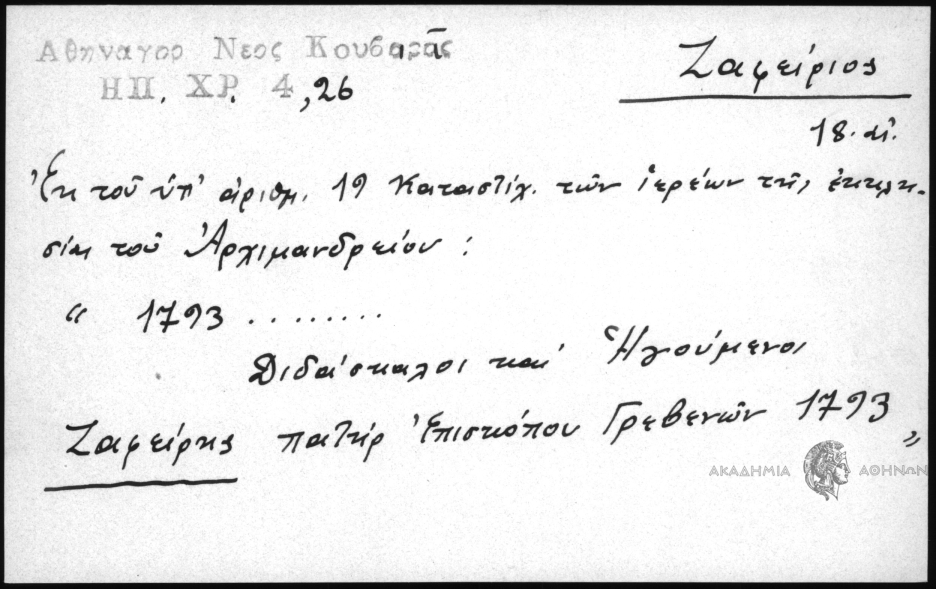 Αθηναγορ Νεος Κουβαρᾶς
ΗΠ. ΧΡ. 4, 26
Ζαφείριος
18. αἰ.
Ἐκ τοῦ ὑπ' ἀριθμ. 19 Καταστίχ. τῶν ἱερέων τῆς ἐκκλη-
σίας τοῦ Ἀρχιμανδρείου :
" 1793 ........
Διδάσκαλοι καὶ Ἡγούμενοι
Ζαφείρης πατὴρ Ἐπισκόπου Γρεβενῶν 1793 "
ΑΚΑΔΗΜΙΑ ΑΘΗΝΩΝ